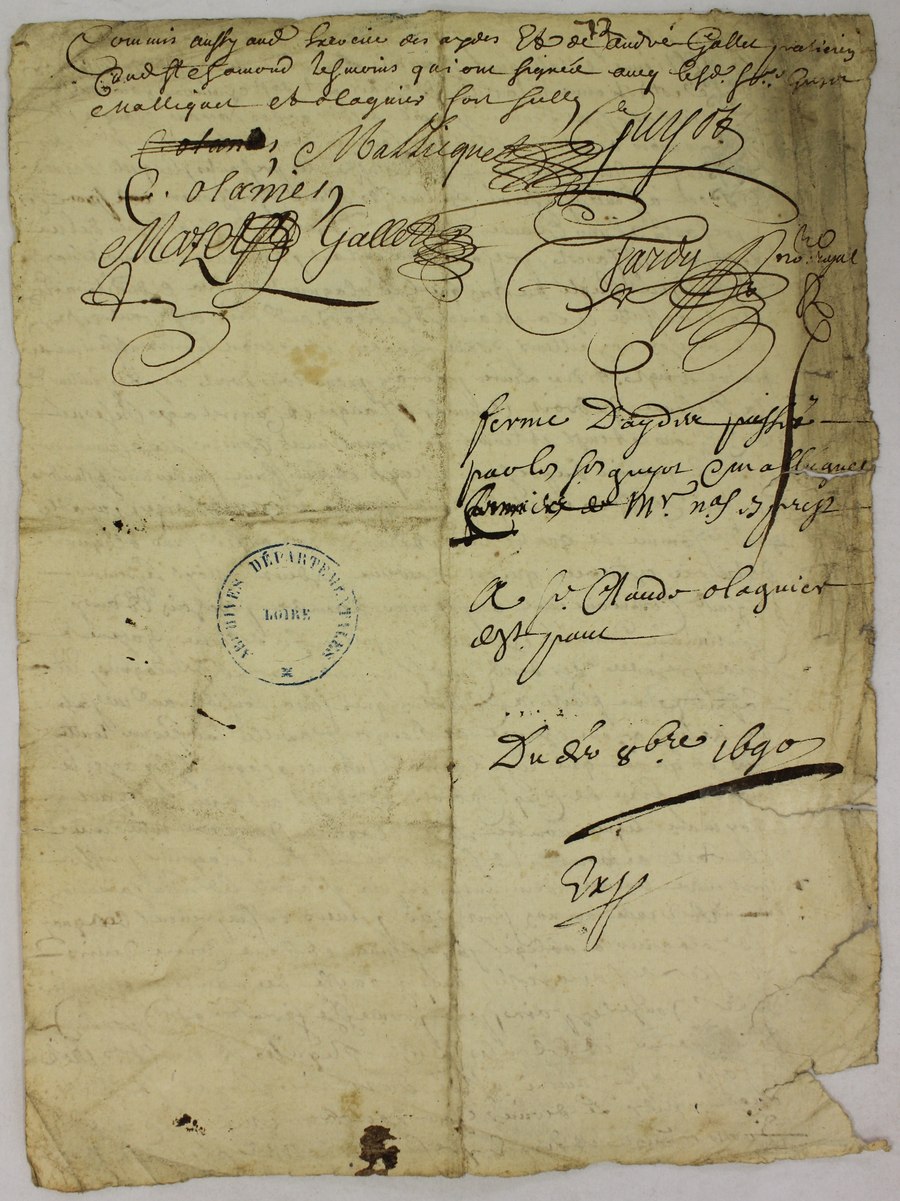 Commis aussy aud exercice des aydes Et de andré Gallet praticien
dud St chamond tesmoins qui ont signéé avec lesd. srs Guyot
Malliquet et olagnier
Malliquet Guyot
C. olanier
Mazet Gallet Tardy no.re royal
ferme D'aydes passéé
par les srs guyot & malliquet
Mr
A sr. Claude olagnier
Du 8bre 1690
Exp
ARCHIVES DÉPARTEMENTALES
LOIRE